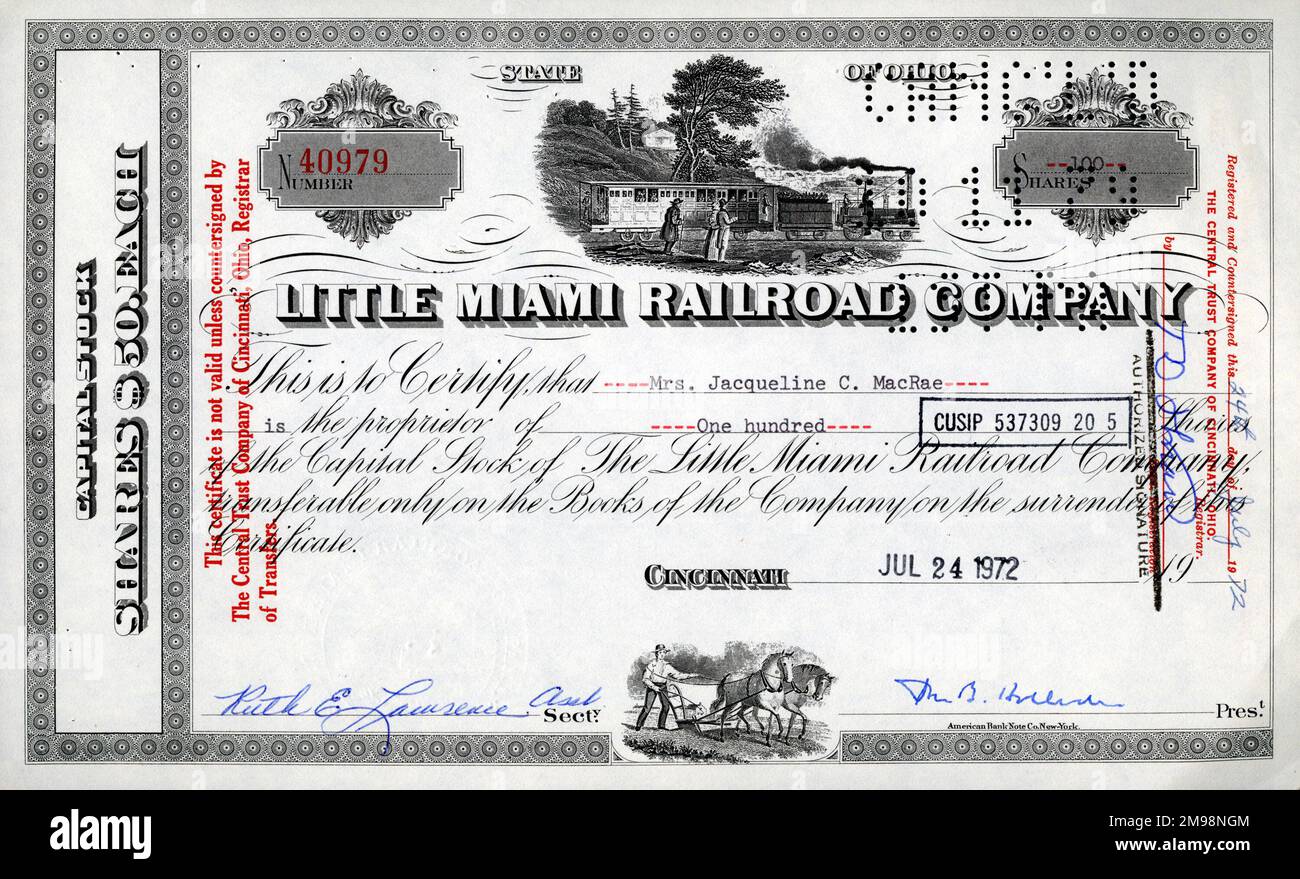 STATE OF OHIO.
CANCELLED
No 40979
NUMBER
--100--
SHARES
CAPITAL STOCK
SHARES $50. EACH
This certificate is not valid unless countersigned by
The Central Trust Company of Cincinnati, Ohio, Registrar
of Transfers.
LITTLE MIAMI RAILROAD COMPANY
This is to Certify, that ----Mrs. Jacqueline C. MacRae----
is the proprietor of ----One hundred---- Shares
CUSIP 537309 20 5
of the Capital Stock of The Little Miami Railroad Company,
transferable only on the Books of the Company on the surrender of this
Certificate.
CINCINNATI JUL 24 1972 19
Registered and Countersigned this 24th day of July 1972
THE CENTRAL TRUST COMPANY OF CINCINNATI, OHIO.
Registrar.
by
AUTHORIZED SIGNATURE
Ruth E. Lawrence Asst. Secty.
B. Prest.
American Bank Note Co. New-York.
alamy
alamy
Image ID: 2M98NGM
www.alamy.com